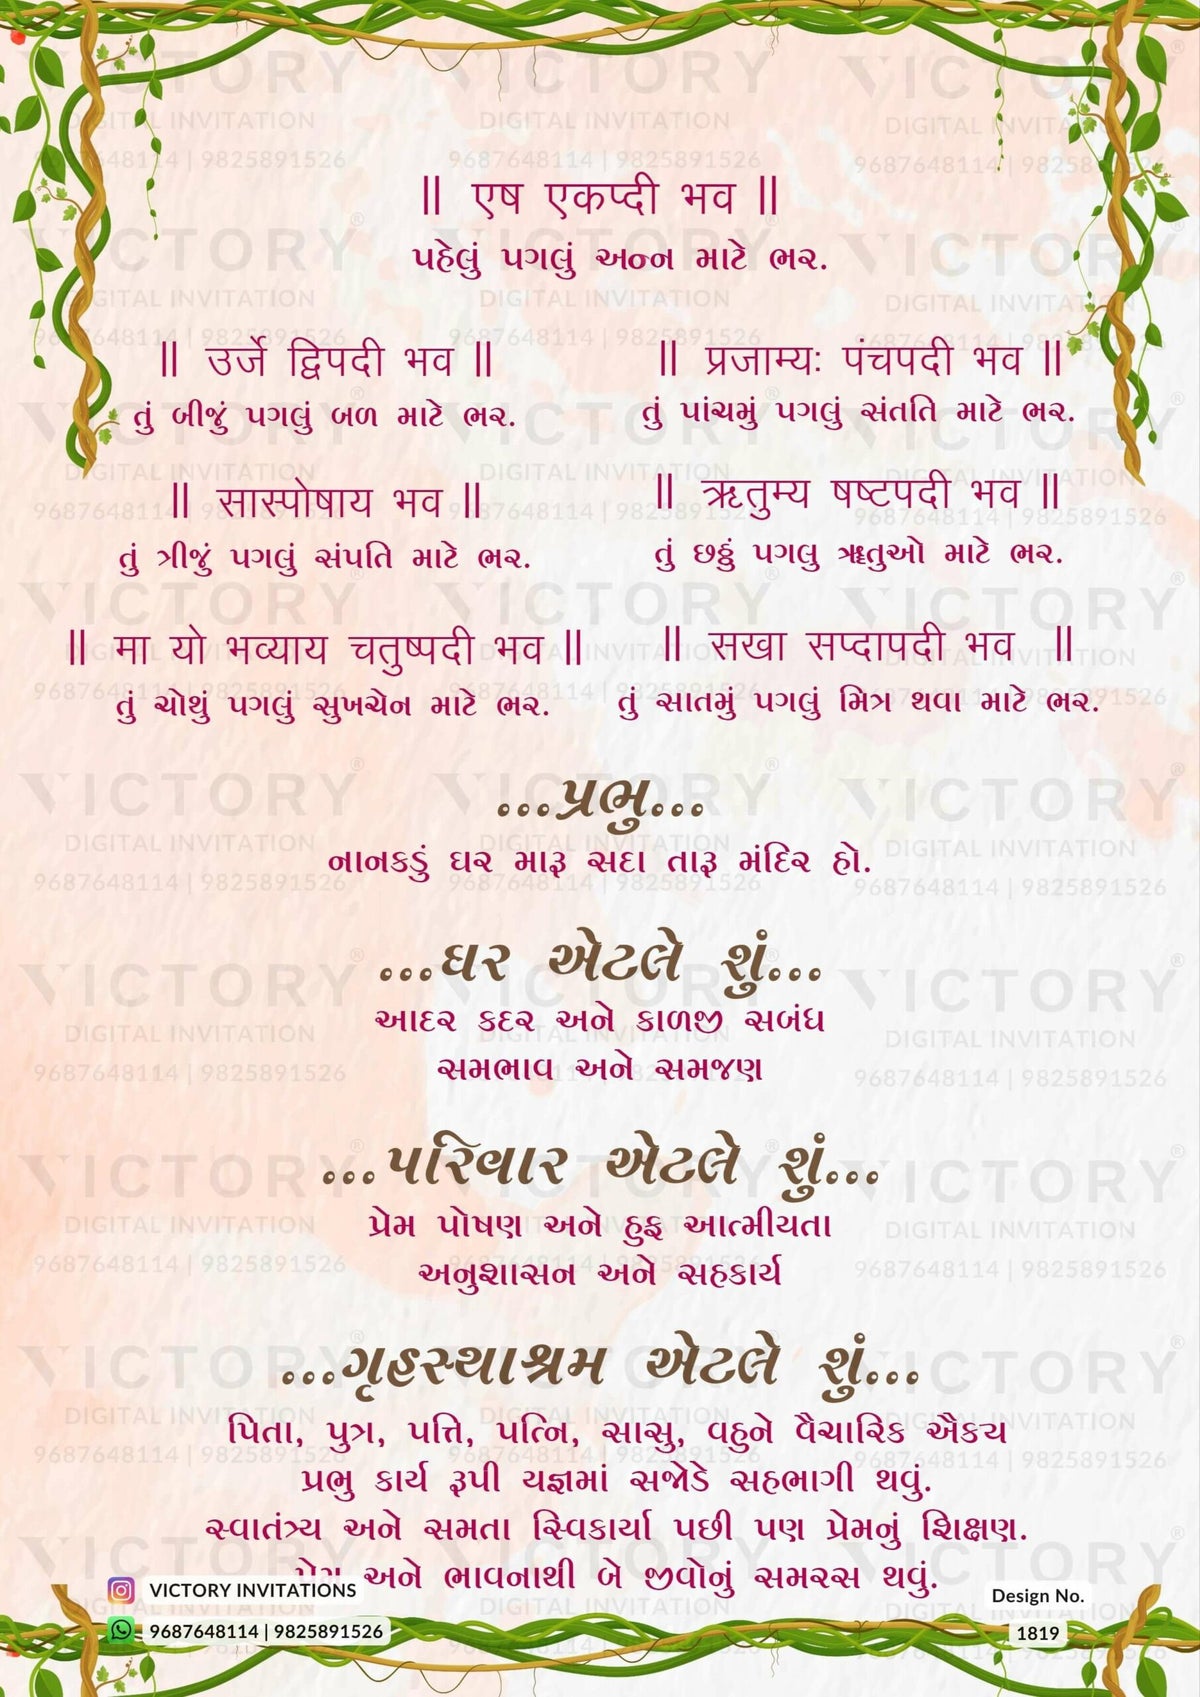 ॥ एष एकप्दी भव ॥
પહેલું પગલું અન્ન માટે ભર.
॥ उर्जे द्विपदी भव ॥
તું બીજું પગલું બળ માટે ભર.
॥ सास्पोषाय भव ॥
તું ત્રીજું પગલું સંપતિ માટે ભર.
॥ मा यो भव्याय चतुष्पदी भव ॥
તું ચોથું પગલું સુખચેન માટે ભર.
॥ प्रजाम्यः पंचपदी भव ॥
તું પાંચમું પગલું સંતતિ માટે ભર.
॥ ऋतुम्य षष्टपदी भव ॥
તું છઠ્ઠું પગલુ ૠતુઓ માટે ભર.
॥ सखा सप्दापदी भव ॥
તું સાતમું પગલું મિત્ર થવા માટે ભર.
...પ્રભુ...
નાનકડું ઘર મારૂ સદા તારૂ મંદિર હો.
...ઘર એટલે શું...
આદર કદર અને કાળજી સબંધ
સમભાવ અને સમજણ
...પરિવાર એટલે શું...
પ્રેમ પોષણ અને હુફ આત્મીયતા
અનુશાસન અને સહકાર્ય
...ગૃહસ્થાશ્રમ એટલે શું...
પિતા, પુત્ર, પત્તિ, પત્નિ, સાસુ, વહુને વૈચારિક ઐક્ય
પ્રભુ કાર્ય રૂપી યજ્ઞમાં સજોડે સહભાગી થવું.
સ્વાતંત્ર્ય અને સમતા સ્વિકાર્યા પછી પણ પ્રેમનું શિક્ષણ.
અને ભાવનાથી બે જીવોનું સમરસ થવું.
VICTORY INVITATIONS
9687648114 | 9825891526
Design No.
1819
VICTORY®
DIGITAL INVITATION
9687648114 | 9825891526